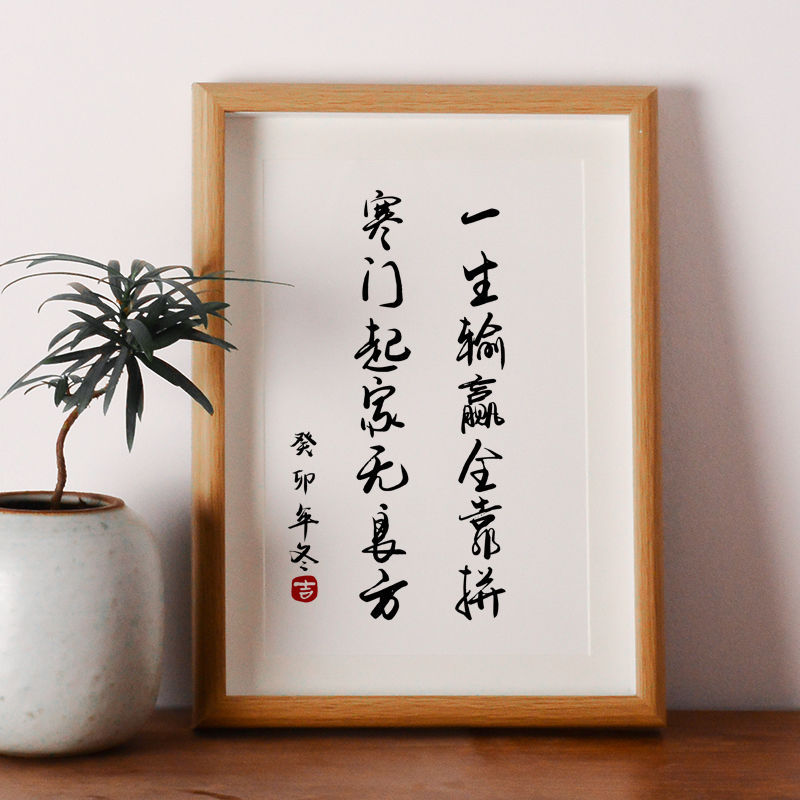 一生输赢全靠拼
寒门起家无良方
癸卯年冬
吉